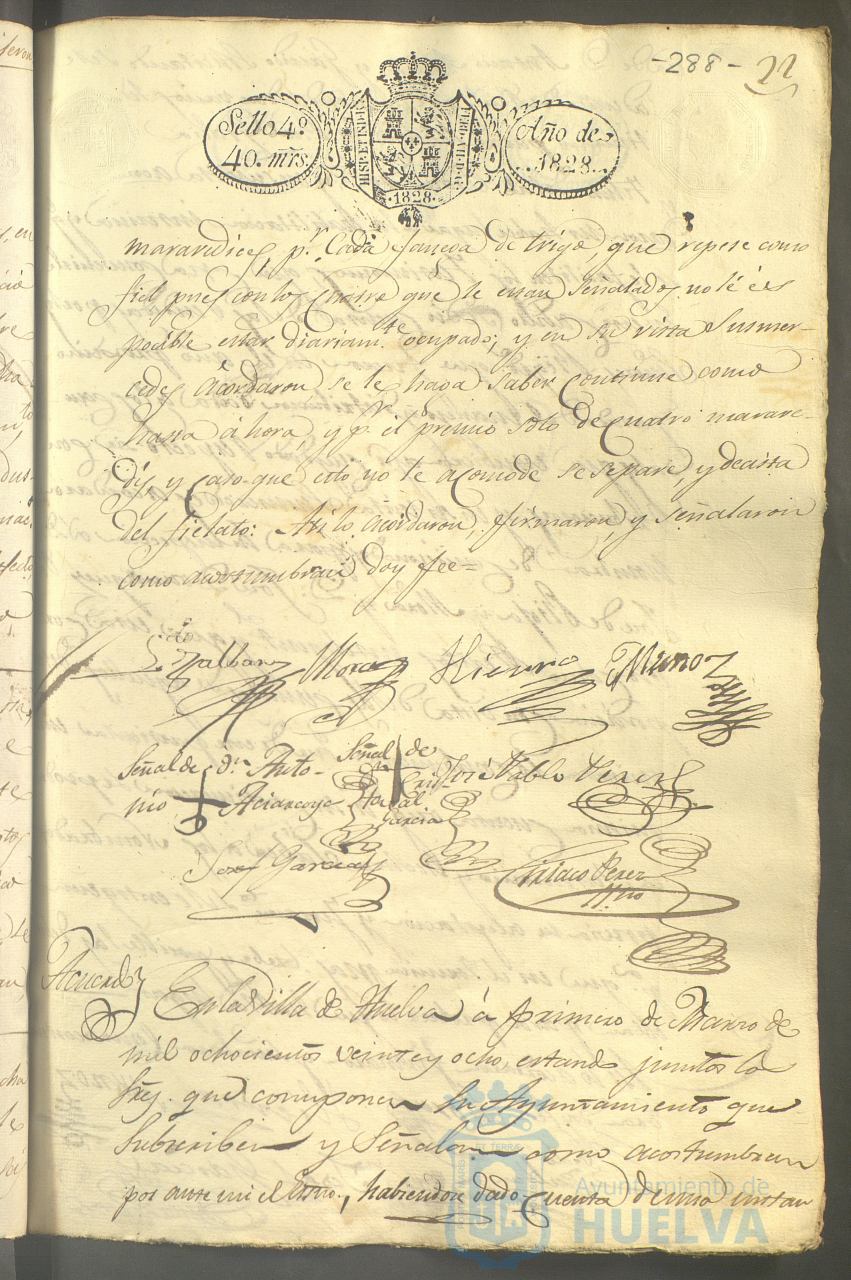 -288- 22
Sello 4º
40. mrs
HISP. ET IND. R
1828
Año de
1828.
maravedices, pr. Cada fanega de trigo, que repese como
fiel pues con los Cuatro que le estan señalados no le és
pocible estar diariamte. ocupado; y en su vista Susmer-
cedes Acordaron, se le haga Saber Continue como
hasta áhora, y pr. el premio solo de Cuatro marave-
dis, y Caso que esto no le acomode se separe, y decista
del fielato: Asi lo acordaron, firmaron, y señalaron
como acostumbran doy fee=
Mora Hierro Muñoz
Señal de dn. Anto-
nio Aciancoya
Señal de
Garcia
José Pablo Perez
Josef Garcia
Ciriaco Perez
Acuerdo
En la Villa de Huelva á primero de Marzo de
mil ochocientos veinte y ocho, estando juntos lo
Sres. que componen su Ayuntamiento que
Subscriben y Señalan como acostumbran
por ante mi el Esno., habiendose dado Cuenta de una instan
Ayuntamiento de
HUELVA